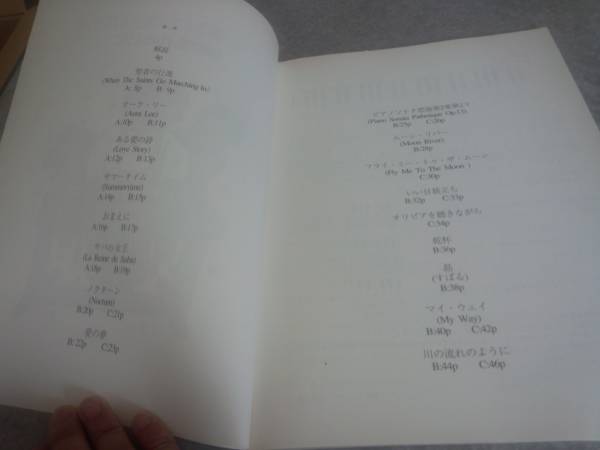 解説
4p
聖者の行進
(When The Saints Go Marching In)
A: 8p B: 9p
オーラ・リー
(Aura Lee)
A:10p B:11p
ある愛の詩
(Love Story)
A:12p B:13p
サマータイム
(Summertime)
A:14p B:15p
おまえに
A:16p B:17p
サバの女王
(La Reine de Saba)
A:18p B:19p
ノクターン
(Nocturn)
B:20p C:21p
愛の夢
B:22p C:23p
ピアノソナタ悲愴第2楽章より
(Piano Sonata Pathetique Op.13)
B:25p C:26p
ムーン・リバー
(Moon River)
B:28p
フライ・ミー・トゥ・ザ・ムーン
(Fly Me To The Moon)
C:30p
いい日旅立ち
B:32p C:33p
オリビアを聴きながら
C:34p
乾杯
B:36p
昴
(すばる)
B:38p
マイ・ウェイ
(My Way)
B:40p C:42p
川の流れのように
B:44p C:46p